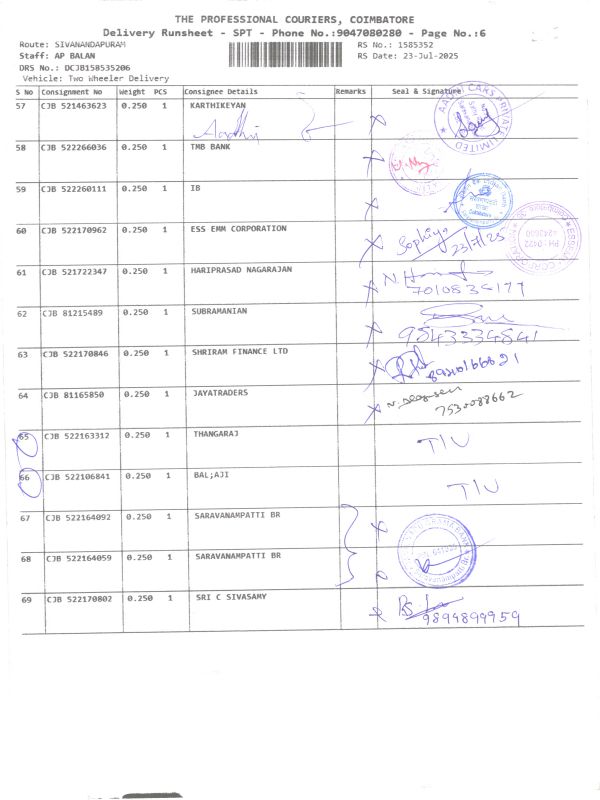 THE PROFESSIONAL COURIERS, COIMBATORE
Delivery Runsheet - SPT - Phone No.:9047080280 - Page No.:6
Route: SIVANANDAPURAM RS No.: 1585352
Staff: AP BALAN RS Date: 23-Jul-2025
DRS No.: DCJB158535206
Vehicle: Two Wheeler Delivery
S No Consignment No Weight PCS Consignee Details Remarks Seal & Signature
57 CJB 521463623 0.250 1 KARTHIKEYAN
Aadhi
58 CJB 522266036 0.250 1 TMB BANK
59 CJB 522260111 0.250 1 IB
60 CJB 522170962 0.250 1 ESS EMM CORPORATION
Sophiya 23/7/25
PH: 0422
4243680
61 CJB 521722347 0.250 1 HARIPRASAD NAGARAJAN
7010834177
62 CJB 81215489 0.250 1 SUBRAMANIAN
9543334541
63 CJB 522170846 0.250 1 SHRIRAM FINANCE LTD
64 CJB 81165850 0.250 1 JAYATRADERS
7530088662
65 CJB 522163312 0.250 1 THANGARAJ T/U
66 CJB 522106841 0.250 1 BAL;AJI T/U
67 CJB 522164092 0.250 1 SARAVANAMPATTI BR
68 CJB 522164059 0.250 1 SARAVANAMPATTI BR
69 CJB 522170802 0.250 1 SRI C SIVASAMY
9899899959